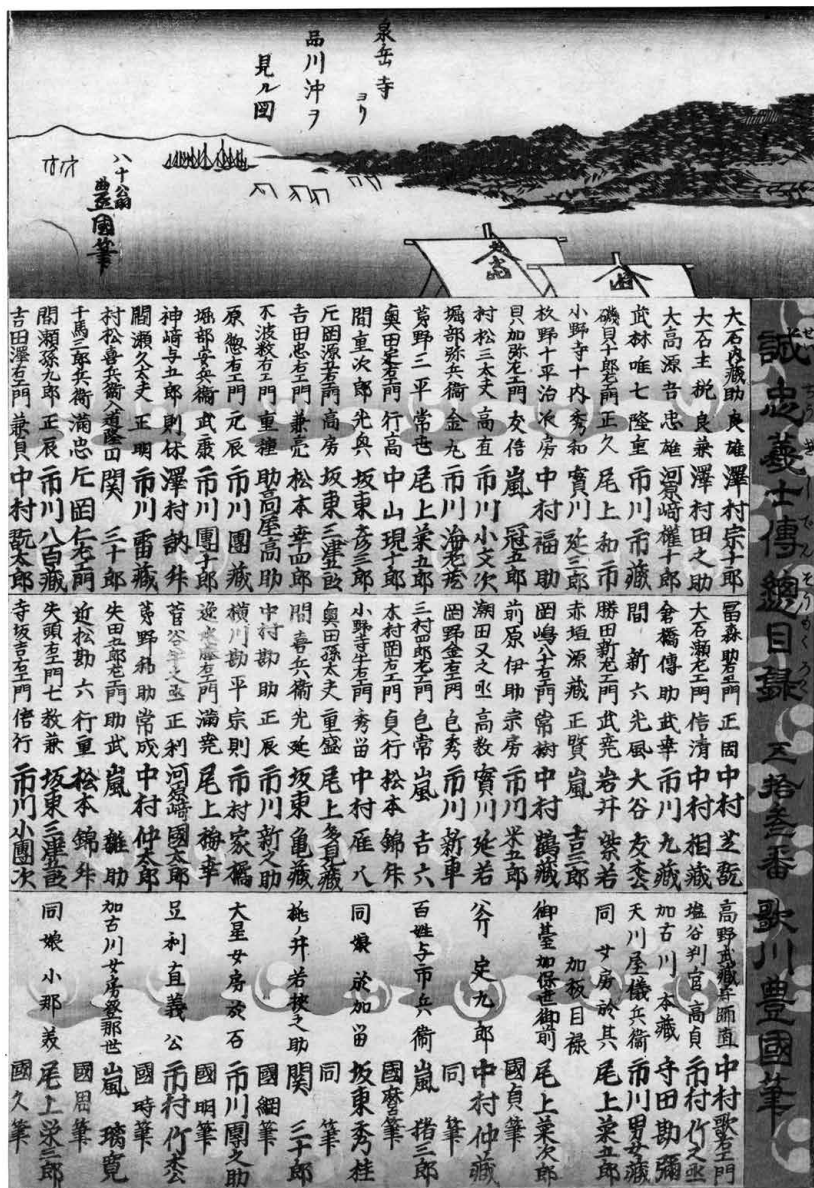 泉岳寺ヨリ
品川沖ヲ
見ル図
八十翁
豊國筆
誠忠義士傳總目録
せいちうぎしでんそうもくろく
五拾叁番
歌川豊國筆
大石内藏助良雄 澤村宗十郎
大石主税良兼 澤村田之助
大高源吾忠雄 河原崎權十郎
武林唯七隆重 市川市藏
磯貝十郎左エ門正久 尾上和市
小野寺十内秀和 實川延三郎
杦野十平治次房 中村福助
貝加弥左エ門友信 嵐冠五郎
村松三太夫高直 市川小文次
堀部弥兵衛金丸 市川海老蔵
萱野三平常世 尾上菊五郎
奥田定右エ門行高 中山現十郎
間重次郎光興 坂東彦三郎
片岡源五右エ門高房 坂東三津五郎
吉田忠右エ門兼亮 松本幸四郎
不波数右エ門重種 助高屋高助
原惣右エ門元辰 市川團藏
堀部安兵衛武庸 市川團十郎
神崎与五郎則休 澤村訥舛
間瀬久太夫正明 市川雷藏
村松喜兵衛入道隆円 関三十郎
千馬三郎兵衛満忠 片岡仁左エ門
間瀬孫九郎正辰 市川八百藏
吉田澤右エ門兼貞 中村翫太郎
冨森助右エ門正因 中村芝翫
大石瀬左エ門信清 中村相藏
倉橋傳助武幸 市川九藏
間新六光風 大谷友松
勝田新左エ門武尭 岩井紫若
赤垣源藏正賢 嵐吉三郎
岡嶋八十右エ門常樹 中村鶴藏
前原伊助宗房 市川米五郎
潮田又之丞高教 實川延若
岡野金右エ門包秀 市川新車
三村四郎左エ門包常 嵐吉六
木村岡右エ門貞行 松本錦舛
小野寺幸右エ門秀畄 中村雁八
奥田孫太夫重盛 尾上多見藏
間喜兵衛光延 坂東亀藏
中村勘助正辰 市川新之助
横川勘平宗則 市村家橘
逸水藤右エ門満尭 尾上梅幸
菅谷半之丞正利 河原崎國太郎
萱野和助常成 中村仲太郎
矢田五郎左エ門助武 嵐雛助
近松勘六行重 松本錦舛
矢頭右エ門七教兼 坂東三津五郎
寺坂吉右エ門信行 市川小團次
高野武藏守師直 中村歌右エ門
塩谷判官高貞 市村竹之丞
加古川本藏 守田勘彌
天川屋儀兵衛 市川男女藏
同女房於其 尾上菊五郎
加板目禄
御䑓加保世御前 尾上菊次郎
國貞筆
斧定九郎 中村仲藏
同筆
百姓与市兵衛 嵐猪三郎
國麿筆
同娘於加畄 坂東秀桂
同筆
桃ノ井若狭之助 関三十郎
國綱筆
大星女房於石 市川團之助
國明筆
足利直義公 市村竹松
國時筆
加古川女房登那世 嵐璃寛
國周筆
同娘小那美 尾上栄三郎
國久筆